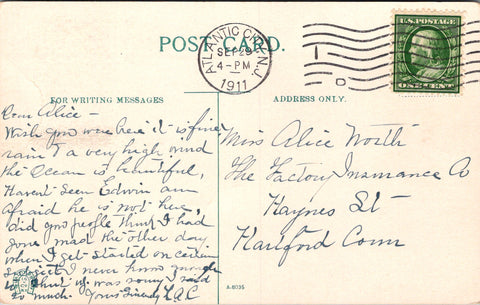 POST CARD.
ATLANTIC CITY, N.J.
SEP 29
4-PM
1911
U.S. POSTAGE
ONE CENT
FOR WRITING MESSAGES
ADDRESS ONLY.
Dear Alice –
Wish you were here it is fine
rain & a very high wind
the Ocean is beautiful,
Haven't seen Edwin am
afraid he is not here,
did you people think I had
gone mad the other day
when I get started on certain
subject I never know enough
to shut up was sorry I said
so much. Yours Sincerely L.A.C.
Miss Alice North
The Factory Insurance Co
Haynes St
Hartford Conn
A-8035